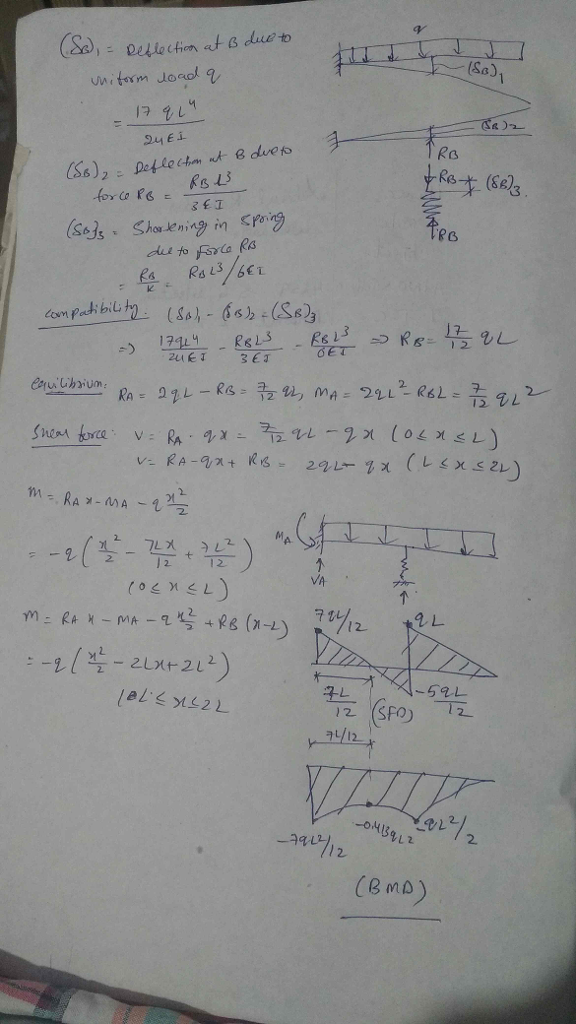 (δB)1 = Deflection at B due to
uniform load q
= 17 qL^4 / 24EI
(δB)2 = Deflection at B due to
force RB = RB L^3 / 3EI
(δB)3 = Shortening in spring
due to force RB
= RB / K = RB L^3 / 6EI
compatibility: (δB)1 - (δB)2 = (δB)3
=> 17qL^4 / 24EI - RB L^3 / 3EI - RB L^3 / 6EI => RB = 17/12 qL
equilibrium: RA = 2qL - RB = 7/12 qL, MA = 2qL^2 - RBL = 7/12 qL^2
Shear force: V = RA - qx = 7/12 qL - qx (0 ≤ x ≤ L)
V = RA - qx + RB = 2qL - qx (L ≤ x ≤ 2L)
M = RA x - MA - q x^2/2
= -q (x^2/2 - 7Lx/12 + 7L^2/12)
(0 ≤ x ≤ L)
M = RA x - MA - q x^2/2 + RB (x-L)
= -q (x^2/2 - 2Lx + 2L^2)
L ≤ x ≤ 2L
q
(δB)1
(δB)2
RB
RB
(δB)3
RB
MA
VA
7qL/12
qL
7L/12
-5qL/12
(SFD)
7L/12
-7qL^2/12
-0.413qL2
-qL^2/2
(BMD)